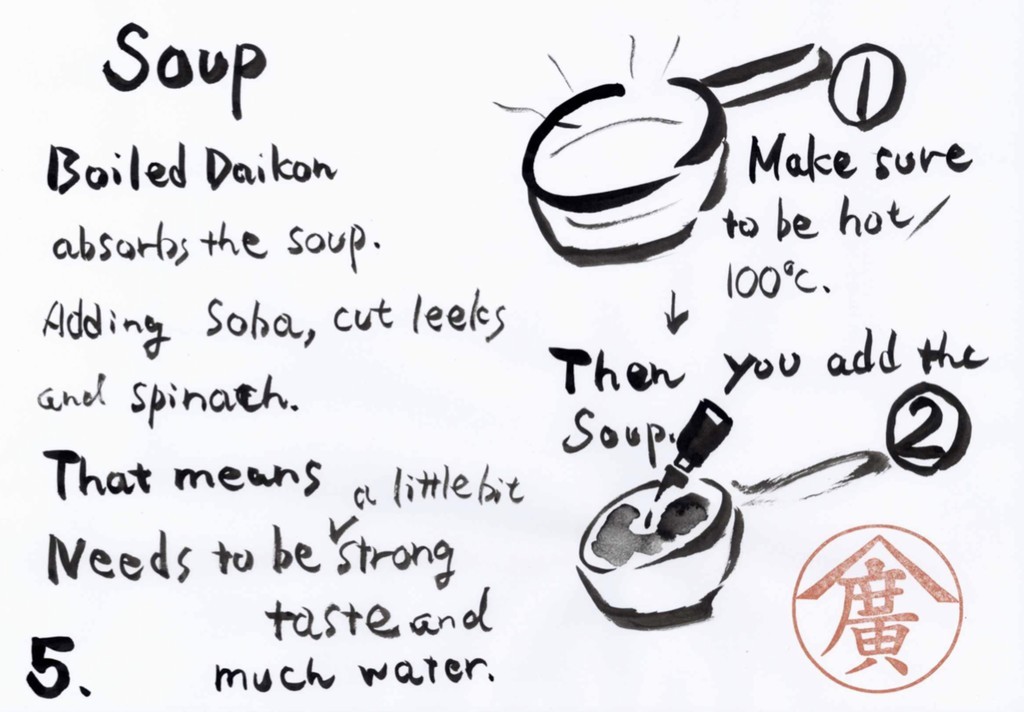 Soup
Boiled Daikon
absorbs the soup.
Adding Soba, cut leeks
and spinach.
That means a little bit
Needs to be strong
taste and
much water.
5.
①
Make sure
to be hot/
100°C.
↓
Then you add the
Soup.
②
廣